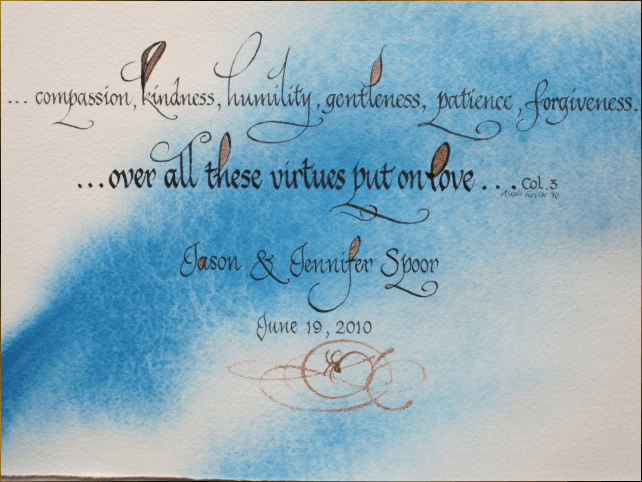 ... compassion, kindness, humility, gentleness, patience, forgiveness...
...over all these virtues put on love ... Col. 3
Jason & Jennifer Spoor
June 19, 2010